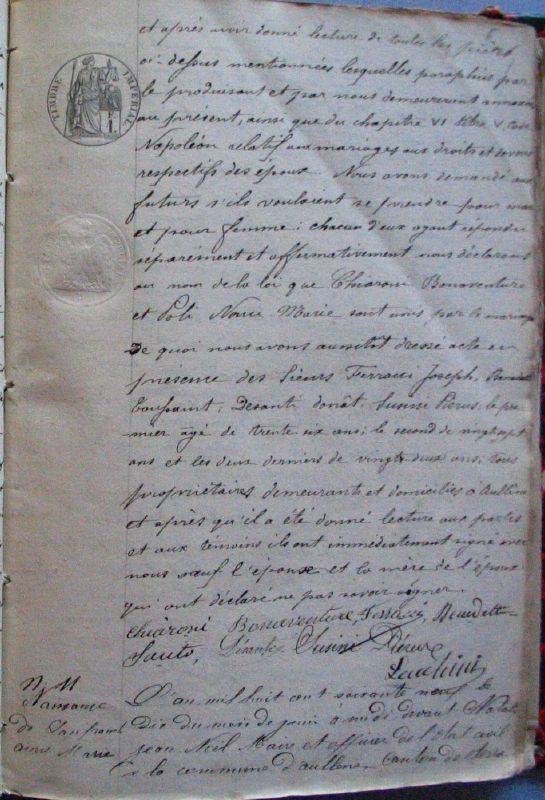 TIMBRE IMPERIAL
et après avoir donné lecture de toutes les pièces
ci-dessus mentionnées lesquelles paraphées par
le produisant et par nous demeureront annexées
au présent, ainsi que du chapitre VI titre V code
Napoléon relatif aux mariages aux droits et devoirs
respectifs des époux. Nous avons demandé aux
futurs s'ils voulaient se prendre pour mari
et pour femme; chacun d'eux ayant répondu
séparément et affirmativement nous déclarons
au nom de la loi que Chiaroni Bonaventure
et Poli Marie sont unis par le mariage
De quoi nous avons aussitot dressé acte en
présence des Sieurs Ferracci Joseph,
Toussaint, Desanti donât, Susini Pierus, le pre
mier âgé de trente six ans; le second de vingt sept
ans et les deux derniers de vingt deux ans, tous
propriétaires demeurant et domiciliés à Aullène
et après qu'il a été donné lecture aux parties
et aux témoins ils ont immédiatement signé avec
nous sauf l'épouse et la mère de l'époux
qui ont déclaré ne pas savoir signer.
Chiaroni Bonaventure,
Santo, Susini Piereus
Lucchini
Naissance
de
Marie
L'an mil huit cent soixante neuf le
Dix du mois de juin à midi devant
Jean Noël Maire et officier de l'état civil
de la commune d'aullene Canton de Serra